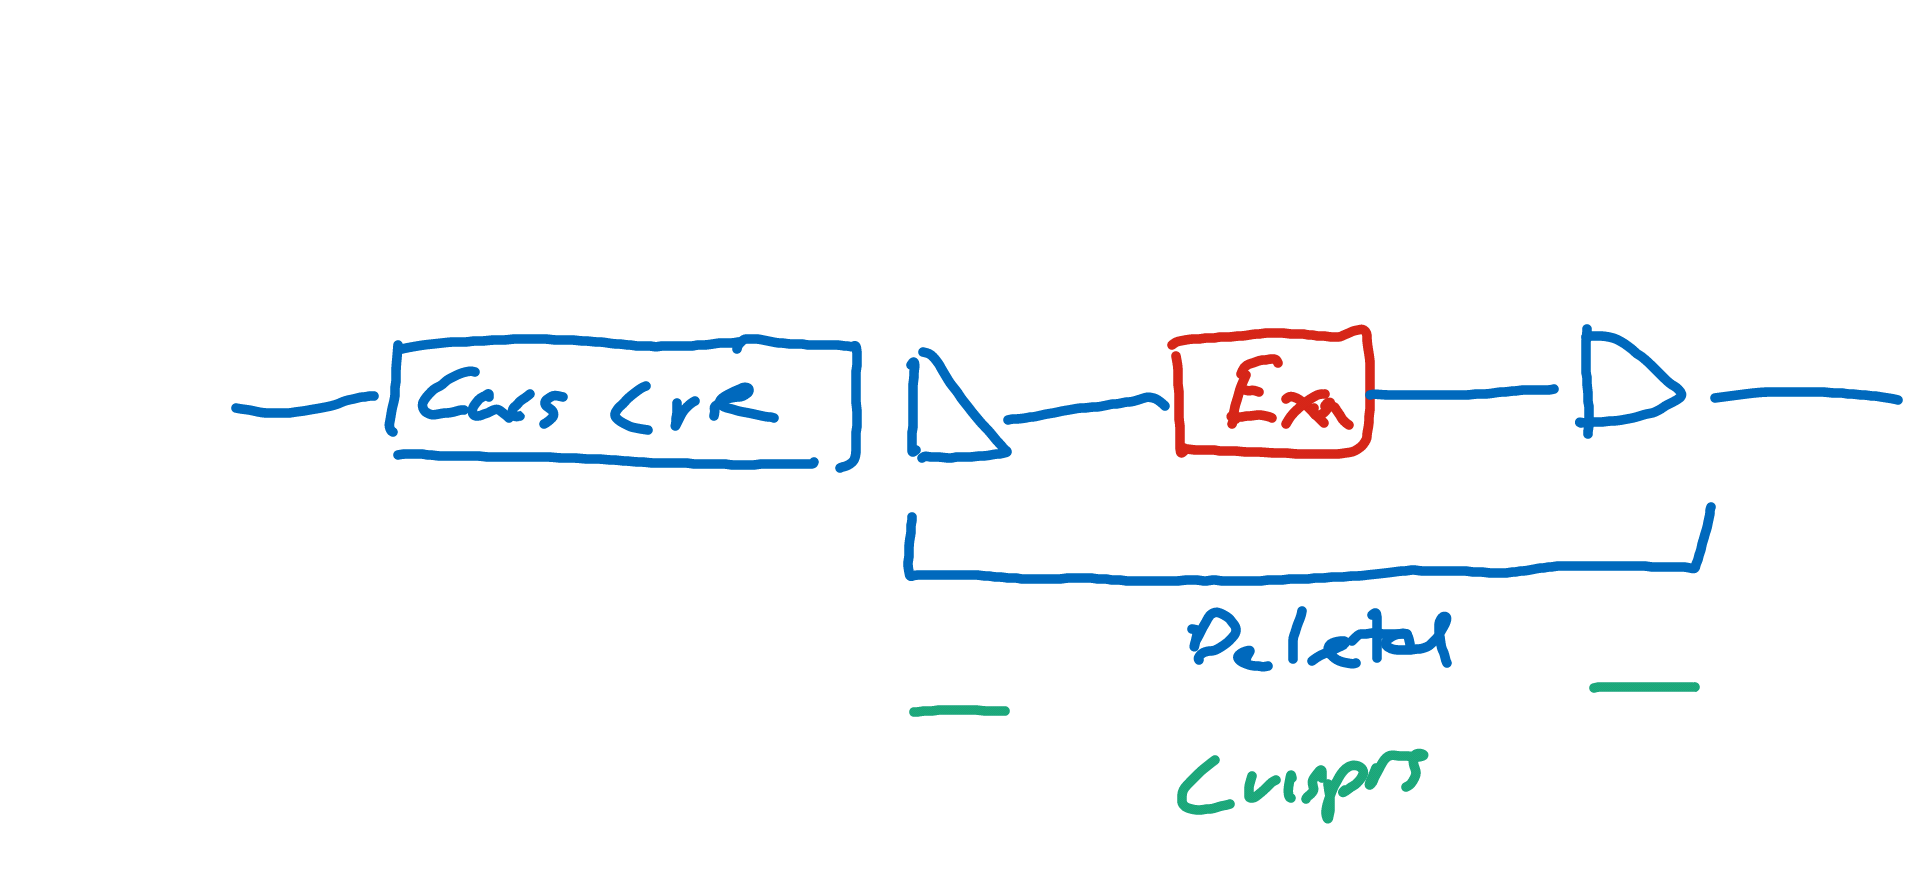 Cas Cre
Exn
Deleted
Crisprs